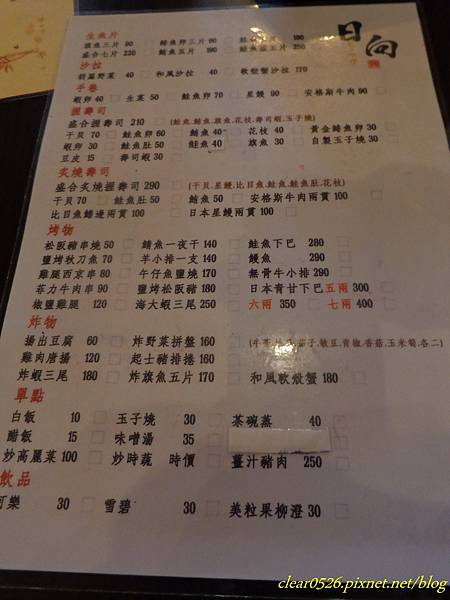 日向
生魚片
旗魚三片 90 鮭魚卵三片 90
盛合七片 220 鮪魚五片 190
沙拉
胡麻野菜 40 和風沙拉 40 軟殼蟹沙拉 170
手卷
蝦卵 40 生菜 50 鮭魚卵 90 星鰻 90 安格斯牛肉 90
握壽司
盛合握壽司 210 (鮭魚.鮪魚.旗魚.花枝.壽司蝦.玉子燒)
干貝 70 鮭魚卵 60 鮪魚 40 花枝 40 黃金鯡魚卵 30
蝦卵 30 鮭魚肚 50 鮭魚 40 旗魚 30 自製玉子燒 30
豆皮 15 壽司蝦 30
炙燒壽司
盛合炙燒握壽司 290 (干貝.星鰻.比目魚.鮭魚.鮭魚肚.花枝)
干貝 70 鮭魚肚 50 鮪魚 50 安格斯牛肉兩貫 100
比目魚鰭邊兩貫 100 日本星鰻兩貫 100
烤物
松阪豬串燒 50 鯖魚一夜干 140 鮭魚下巴 280
鹽烤秋刀魚 70 羊小排一支 140 鰻魚 290
雞腿西京串 80 午仔魚鹽燒 170 無骨牛小排 290
菲力牛肉串 90 鹽烤松阪豬 180 日本青甘下巴 五兩 300
椒鹽雞腿 120 海大蝦三尾 250 六兩 350 七兩 400
炸物
揚出豆腐 60 炸野菜拼盤 160
雞肉唐揚 120 起士豬排捲 160
炸蝦三尾 180 炸旗魚五片 170 和風軟殼蟹 180
單點
白飯 10 玉子燒 30 茶碗蒸 40
醋飯 15 味噌湯 35
炒高麗菜 100 炒時蔬 時價 薑汁豬肉 250
飲品
可樂 30 雪碧 30 美粒果柳澄 30
clear0526.pixnet.net/blog